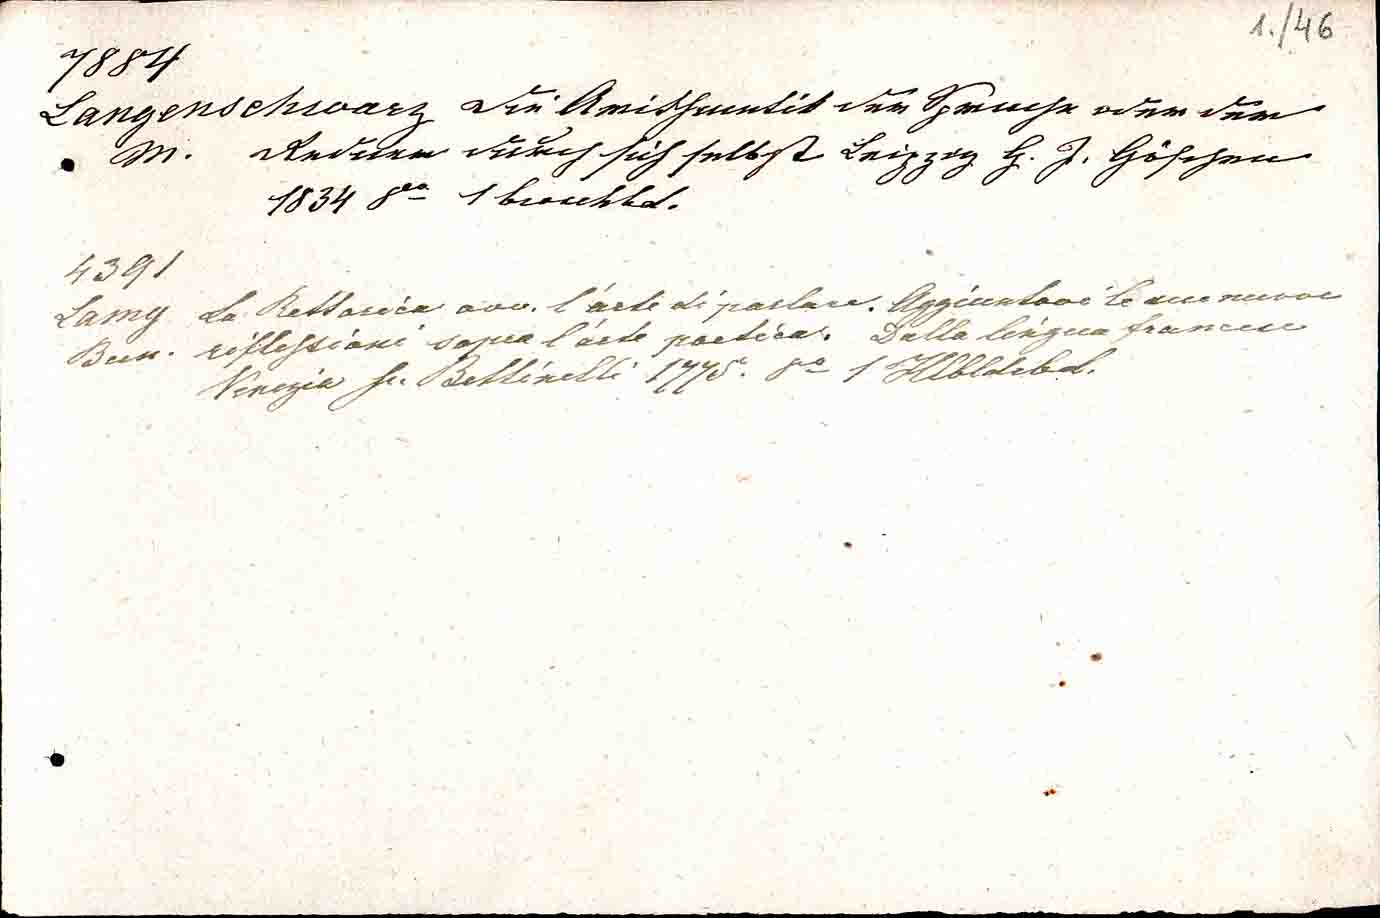 1./46
7884
Langenschwarz Die Arithmetik der Sprache oder der
M. Redner durch sich selbst Leipzig G. J. Göschen
1834 8vo 1 broschbd.
4391
Lamy La Rettorica ovv. l'arte di parlare. Aggiuntovi le sue nuove
Bern. riflessioni sopra l'arte poetica. Dalla lingua francese
Venezia Bettinelli 1775. 8o 1 Hlbldrbd.